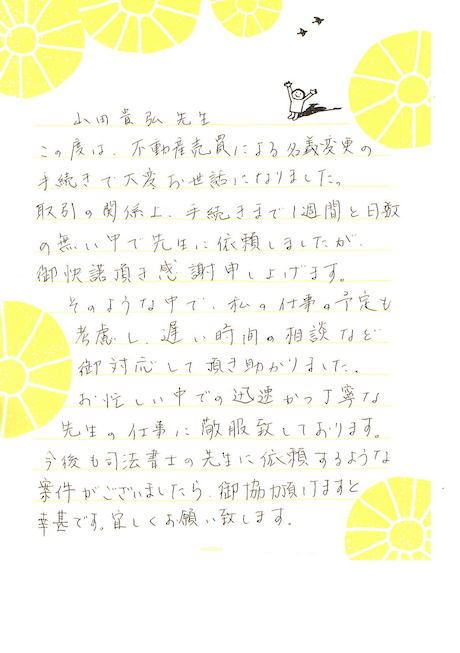 山田貴弘先生
この度は、不動産売買による名義変更の
手続きで大変お世話になりました。
取引の関係上、手続きまで1週間と日数
の無い中で先生に依頼しましたが、
御快諾頂き感謝申し上げます。
そのような中で、私の仕事の予定も
考慮し、遅い時間の相談など
御対応して頂き助かりました。
お忙しい中での迅速かつ丁寧な
先生の仕事に敬服致しております。
今後も司法書士の先生に依頼するような
案件がございましたら、御協力頂けますと
幸甚です。宜しくお願い致します。